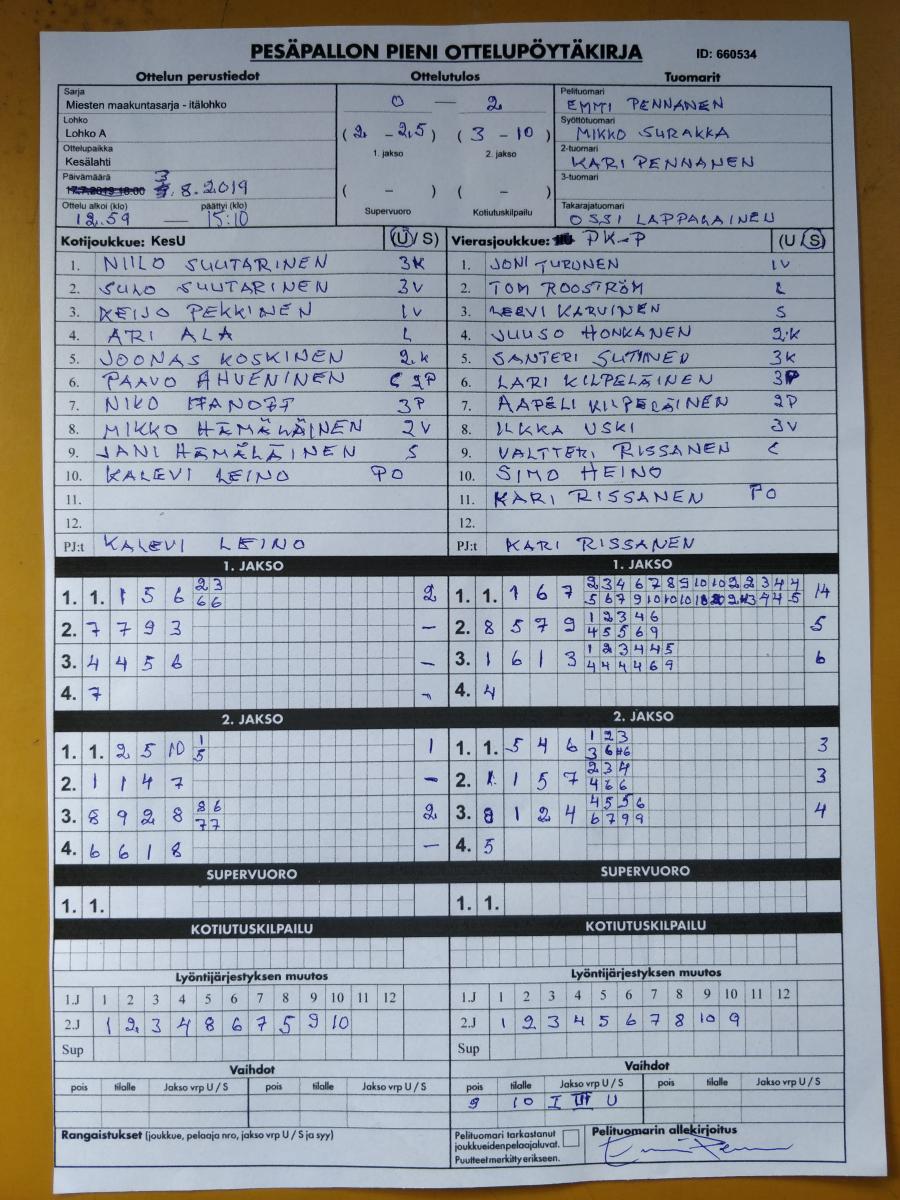 PESÄPALLON PIENI OTTELUPÖYTÄKIRJA ID: 660534
Ottelun perustiedot Ottelutulos Tuomarit
Sarja
Miesten maakuntasarja - itälohko
Lohko
Lohko A
Ottelupaikka
Kesälahti
Päivämäärä
3.8.2019
Ottelu alkoi (klo) päättyi (klo)
12.59 — 15:10
0 — 2
(2 - 25) (3 - 10)
1. jakso 2. jakso
( - ) ( - )
Supervuoro Kotiutuskilpailu
Pelituomari
EMMI PENNANEN
Syöttötuomari
MIKKO SURAKKA
2-tuomari
KARI PENNANEN
3-tuomari
Takarajatuomari
OSSI LAPPALAINEN
Kotijoukkue: KesU (U / S) Vierasjoukkue: PK-P (U / S)
1. NIILO SUUTARINEN 3K 1. JONI TURUNEN 1V
2. SULO SUUTARINEN 3V 2. TOM ROOSTRÖM L
3. KEIJO PEKKINEN 1V 3. LEEVI KARVINEN S
4. ARI ALA L 4. JUUSO HONKANEN 2K
5. JOONAS KOSKINEN 2.K 5. SANTERI 3K
6. PAAVO AHVENINEN 2P 6. LARI KILPELÄINEN 3P
7. NIKO 3P 7. AAPELI KILPELÄINEN 2P
8. MIKKO HÄMÄLÄINEN 2V 8. ILKKA USKI 3V
9. JANI HÄMÄLÄINEN S 9. VALTTERI RISSANEN
10. KALEVI LEINO PO 10. SIMO HEINO
11. 11. KARI RISSANEN PO
12. 12.
PJ:t KALEVI LEINO PJ:t KARI RISSANEN
1. JAKSO 1. JAKSO
2 3 2 3 4 6 7 8 9 10 10 2 2 3 4 4
1. 1. 1 5 6 2 1. 1. 1 6 7 14
6 6 5 6 7 9 10 10 10
1 2 3 4 6
2. 7 7 9 3 – 2. 8 5 7 9 5
4 5 5 6 9
1 2 3 4 4 5
3. 4 4 5 6 – 3. 1 6 1 3 6
4 4 4 4 6 9
4. 7 - 4. 4
2. JAKSO 2. JAKSO
1 1 2 3
1. 1. 2 5 10 1 1. 1. 5 4 6 3
5 3 6 6
2 3 4
2. 1 1 4 7 – 2. 1 1 5 7 3
4 6 6
8 6 4 5 5 6
3. 8 9 2 8 2 3. 8 1 2 4 4
7 7 6 7 9 9
4. 6 6 1 8 – 4. 5
SUPERVUORO SUPERVUORO
1. 1. 1. 1.
KOTIUTUSKILPAILU KOTIUTUSKILPAILU
Lyöntijärjestyksen muutos Lyöntijärjestyksen muutos
1.J 1 2 3 4 5 6 7 8 9 10 11 12 1.J 1 2 3 4 5 6 7 8 9 10 11 12
2.J 1 2 3 4 8 6 7 5 9 10 2.J 1 2 3 4 5 6 7 8 10 9
Sup Sup
Vaihdot Vaihdot
pois tilalle Jakso vrp U / S pois tilalle Jakso vrp U / S pois tilalle Jakso vrp U / S pois tilalle Jakso vrp U / S
9 10 I III U
Rangaistukset (joukkue, pelaaja nro, jakso vrp U / S ja syy)
Pelituomari tarkastanut
joukkueidenpelaajaluvat.
Puutteet merkitty erikseen.
Pelituomarin allekirjoitus